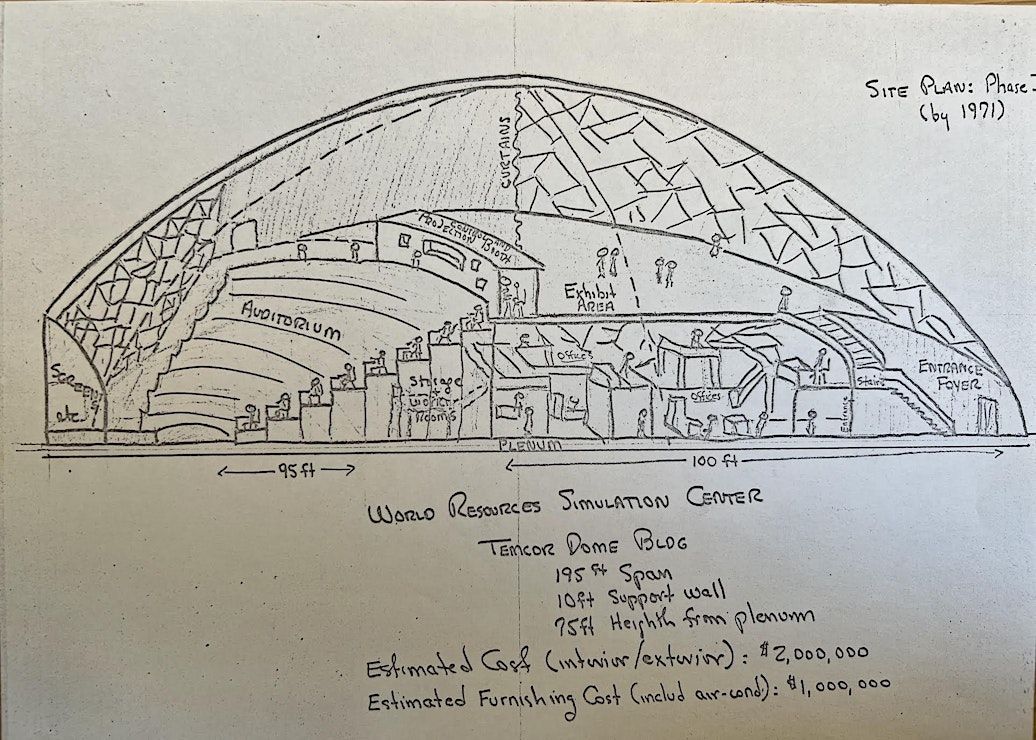 SITE PLAN: Phase
(by 1971)
CURTAINS
PROJECTION BOOTH
AUDITORIUM
Exhibit
AREA
OFFICES
SCREEN
etc.
Storage
Rooms
Offices
Stairs
ENTRANCE
FOYER
PLENUM
95 ft
100 ft
WORLD RESOURCES SIMULATION CENTER
TEMCOR DOME BLDG
195 ft Span
10ft Support wall
75ft Heighth from plenum
Estimated Cost (interior/exterior): $2,000,000
Estimated Furnishing Cost (includ air-cond): $1,000,000